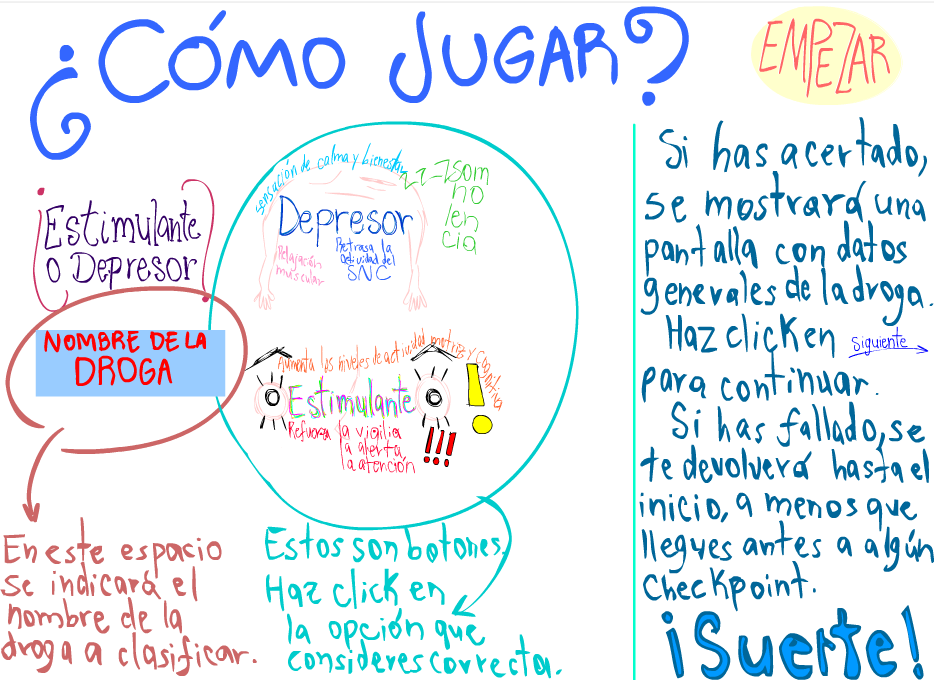 ¿CÓMO JUGAR?
EMPEZAR
Estimulante
o Depresor
NOMBRE DE LA
DROGA
En este espacio
se indicará el
nombre de la
droga a clasificar.
sensación de calma y bienestar
ZZ-Z
Som
no
len
cia
Depresor
Relajación
muscular
Retrasa la
actividad del
SNC
Aumenta los niveles de actividad motriz y Cognitiva
Estimulante
!
Refuerza la vigilia
la alerta
la atención
!!!
Estos son botones.
Haz click en
la opción que
consideres correcta.
Si has acertado,
se mostrará una
pantalla con datos
generales de la droga.
Haz click en Siguiente
para continuar.
Si has fallado, se
te devolverá hasta el
inicio, a menos que
llegues antes a algún
Checkpoint.
¡Suerte!